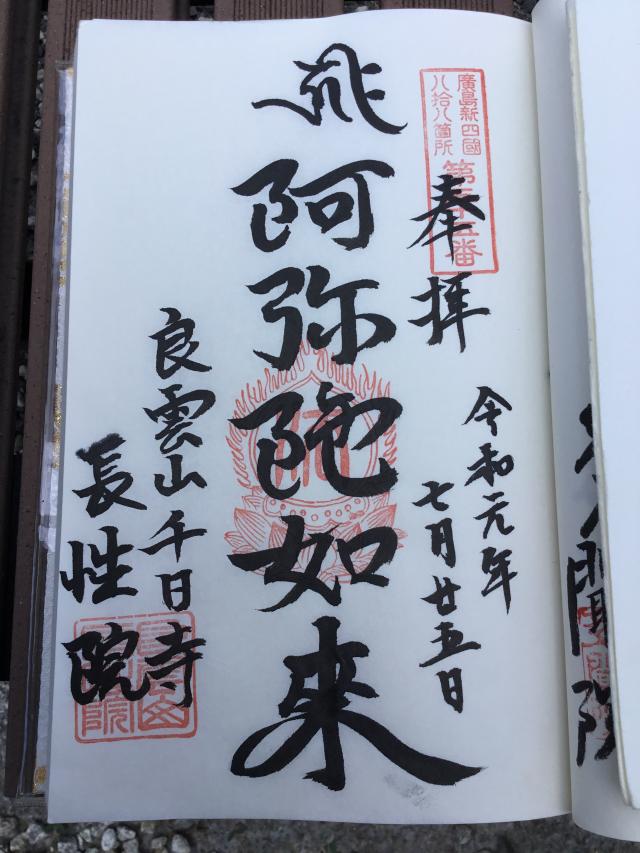 廣島新四國
八拾八箇所
奉拝
令和元年
七月廿五日
阿弥陀如来
良雲山千日寺
長性院